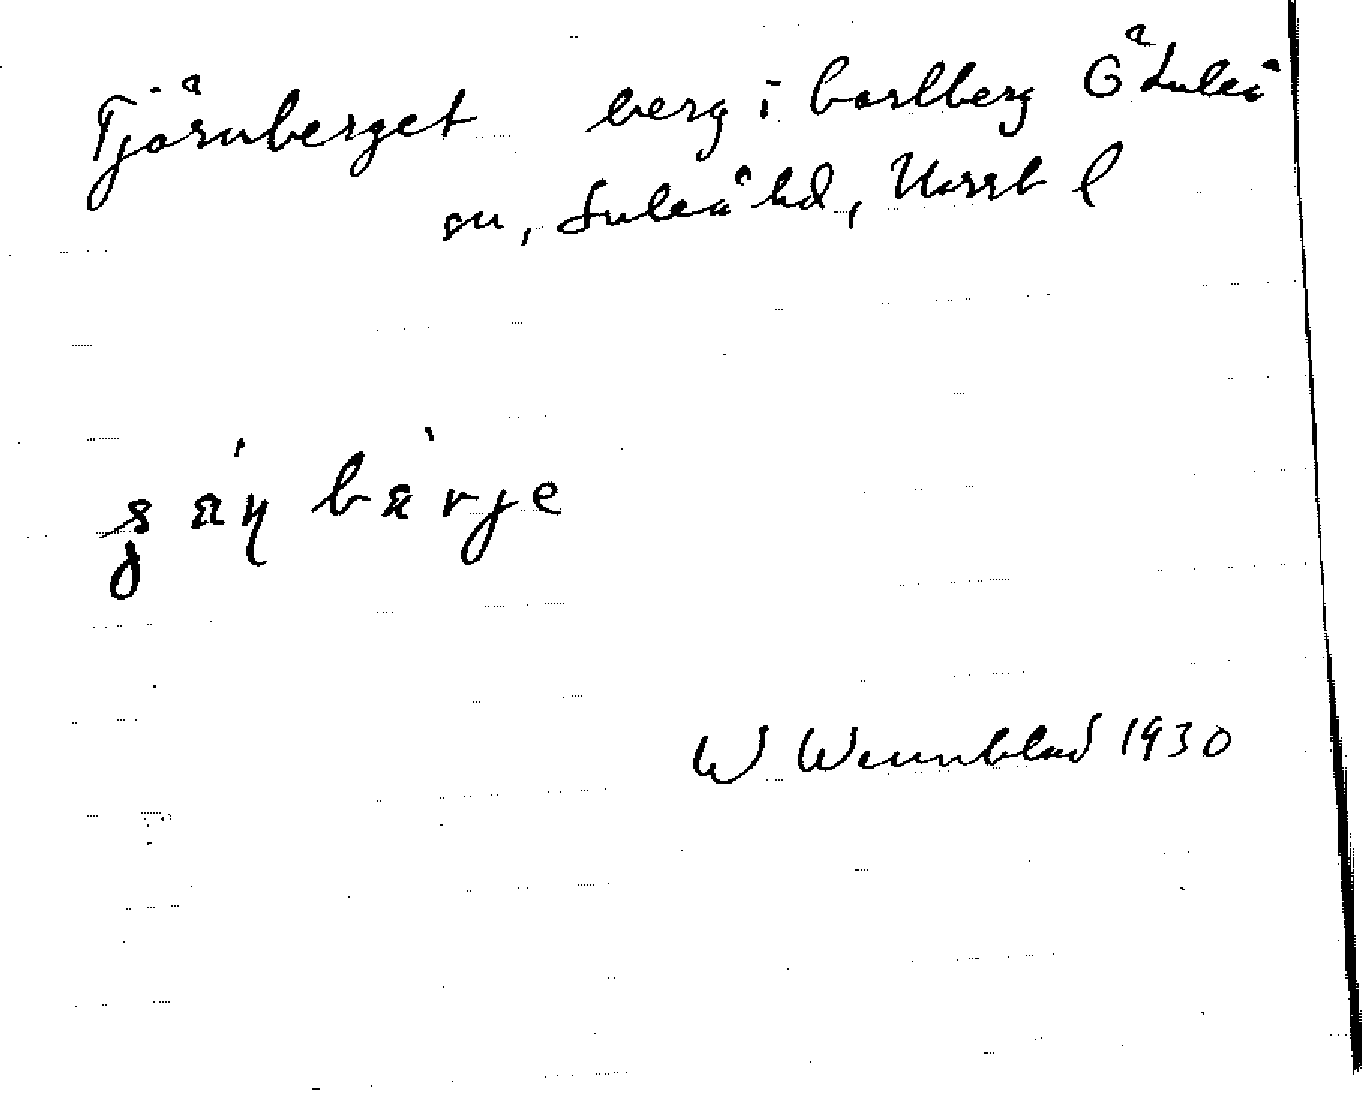 Tjårnberget berg i Carlberg Ga Luleå
sn, Luleå hd, Norrb l
W Wennblad 1930